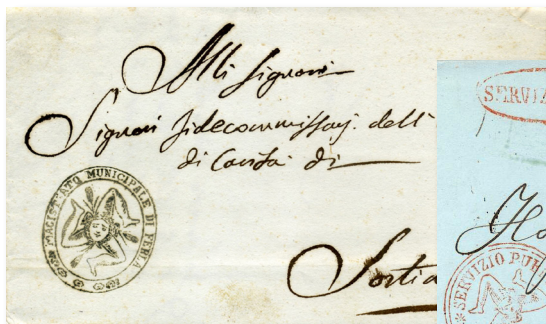 Alli Signori
Signori fidecommissarj dell
di Carità di
Sortia
MAGISTRATO MUNICIPALE DI FERLA
SERVIZ
Ho
SERVIZIO PUB